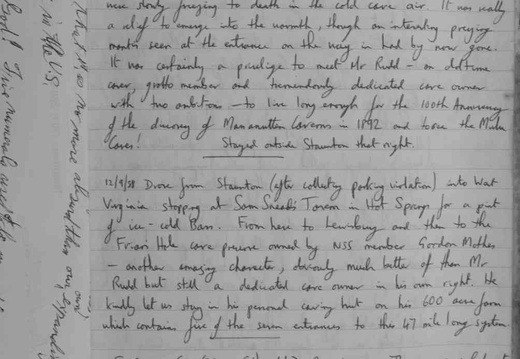 were slowly freezing to death in the cold cave air. It was really
a relief to emerge into the warmth, though an interesting preying
mantis seen at the entrance on the way in had by now gone.
It was certainly a privilege to meet Mr Rudd - an oldtime
caver, grotto member and tremendously dedicated cave owner
with two ambitions - to live long enough for the 100th Anniversary
of the discovery of Massanutten Caverns in 1892 and to see the
Caves! Stayed outside Staunton that night.
12/9/88 Drove from Staunton (after collecting parking violation) into West
Virginia stopping at Sam Sneads Tavern in Hot Springs for a pint
of ice-cold Bass. From here to Lewisburg and then to the
Friars Hole cave preserve owned by NSS member Gordon Mothes
- another amazing character, obviously much better off than Mr
Rudd but still a dedicated cave owner in his own right. He
kindly let us stay in his personal caving hut on his 600 acre farm
which contains five of the seven entrances to this 47 mile long system.
in the US